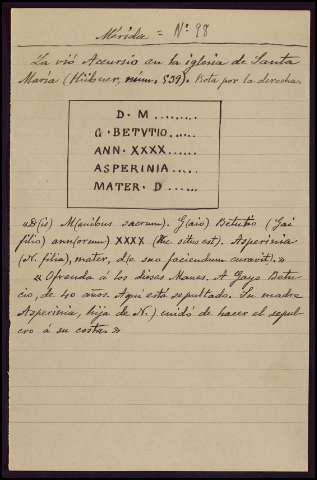 Mérida = Nº 98
La vió Accursio en la iglesia de Santa
María (Hübner, núm. 539). Rota por la derecha.
D · M .........
G · BETVTIO ......
ANN · XXXX ......
ASPERINIA .....
MATER · D ......
«D(is) M(anibus sacrum). G(aio) Betutio (Gai
filio) ann(orum) XXXX (Hic situs est). Asperinia
(N. filia), mater, d(e suo faciendum curavit).»
«Ofrenda á los dioses Manes. A Gayo Betu-
cio, de 40 años. Aquí está sepultado. Su madre
Asperinia, hija de N.) cuidó de hacer el sepul-
cro á su costa.»